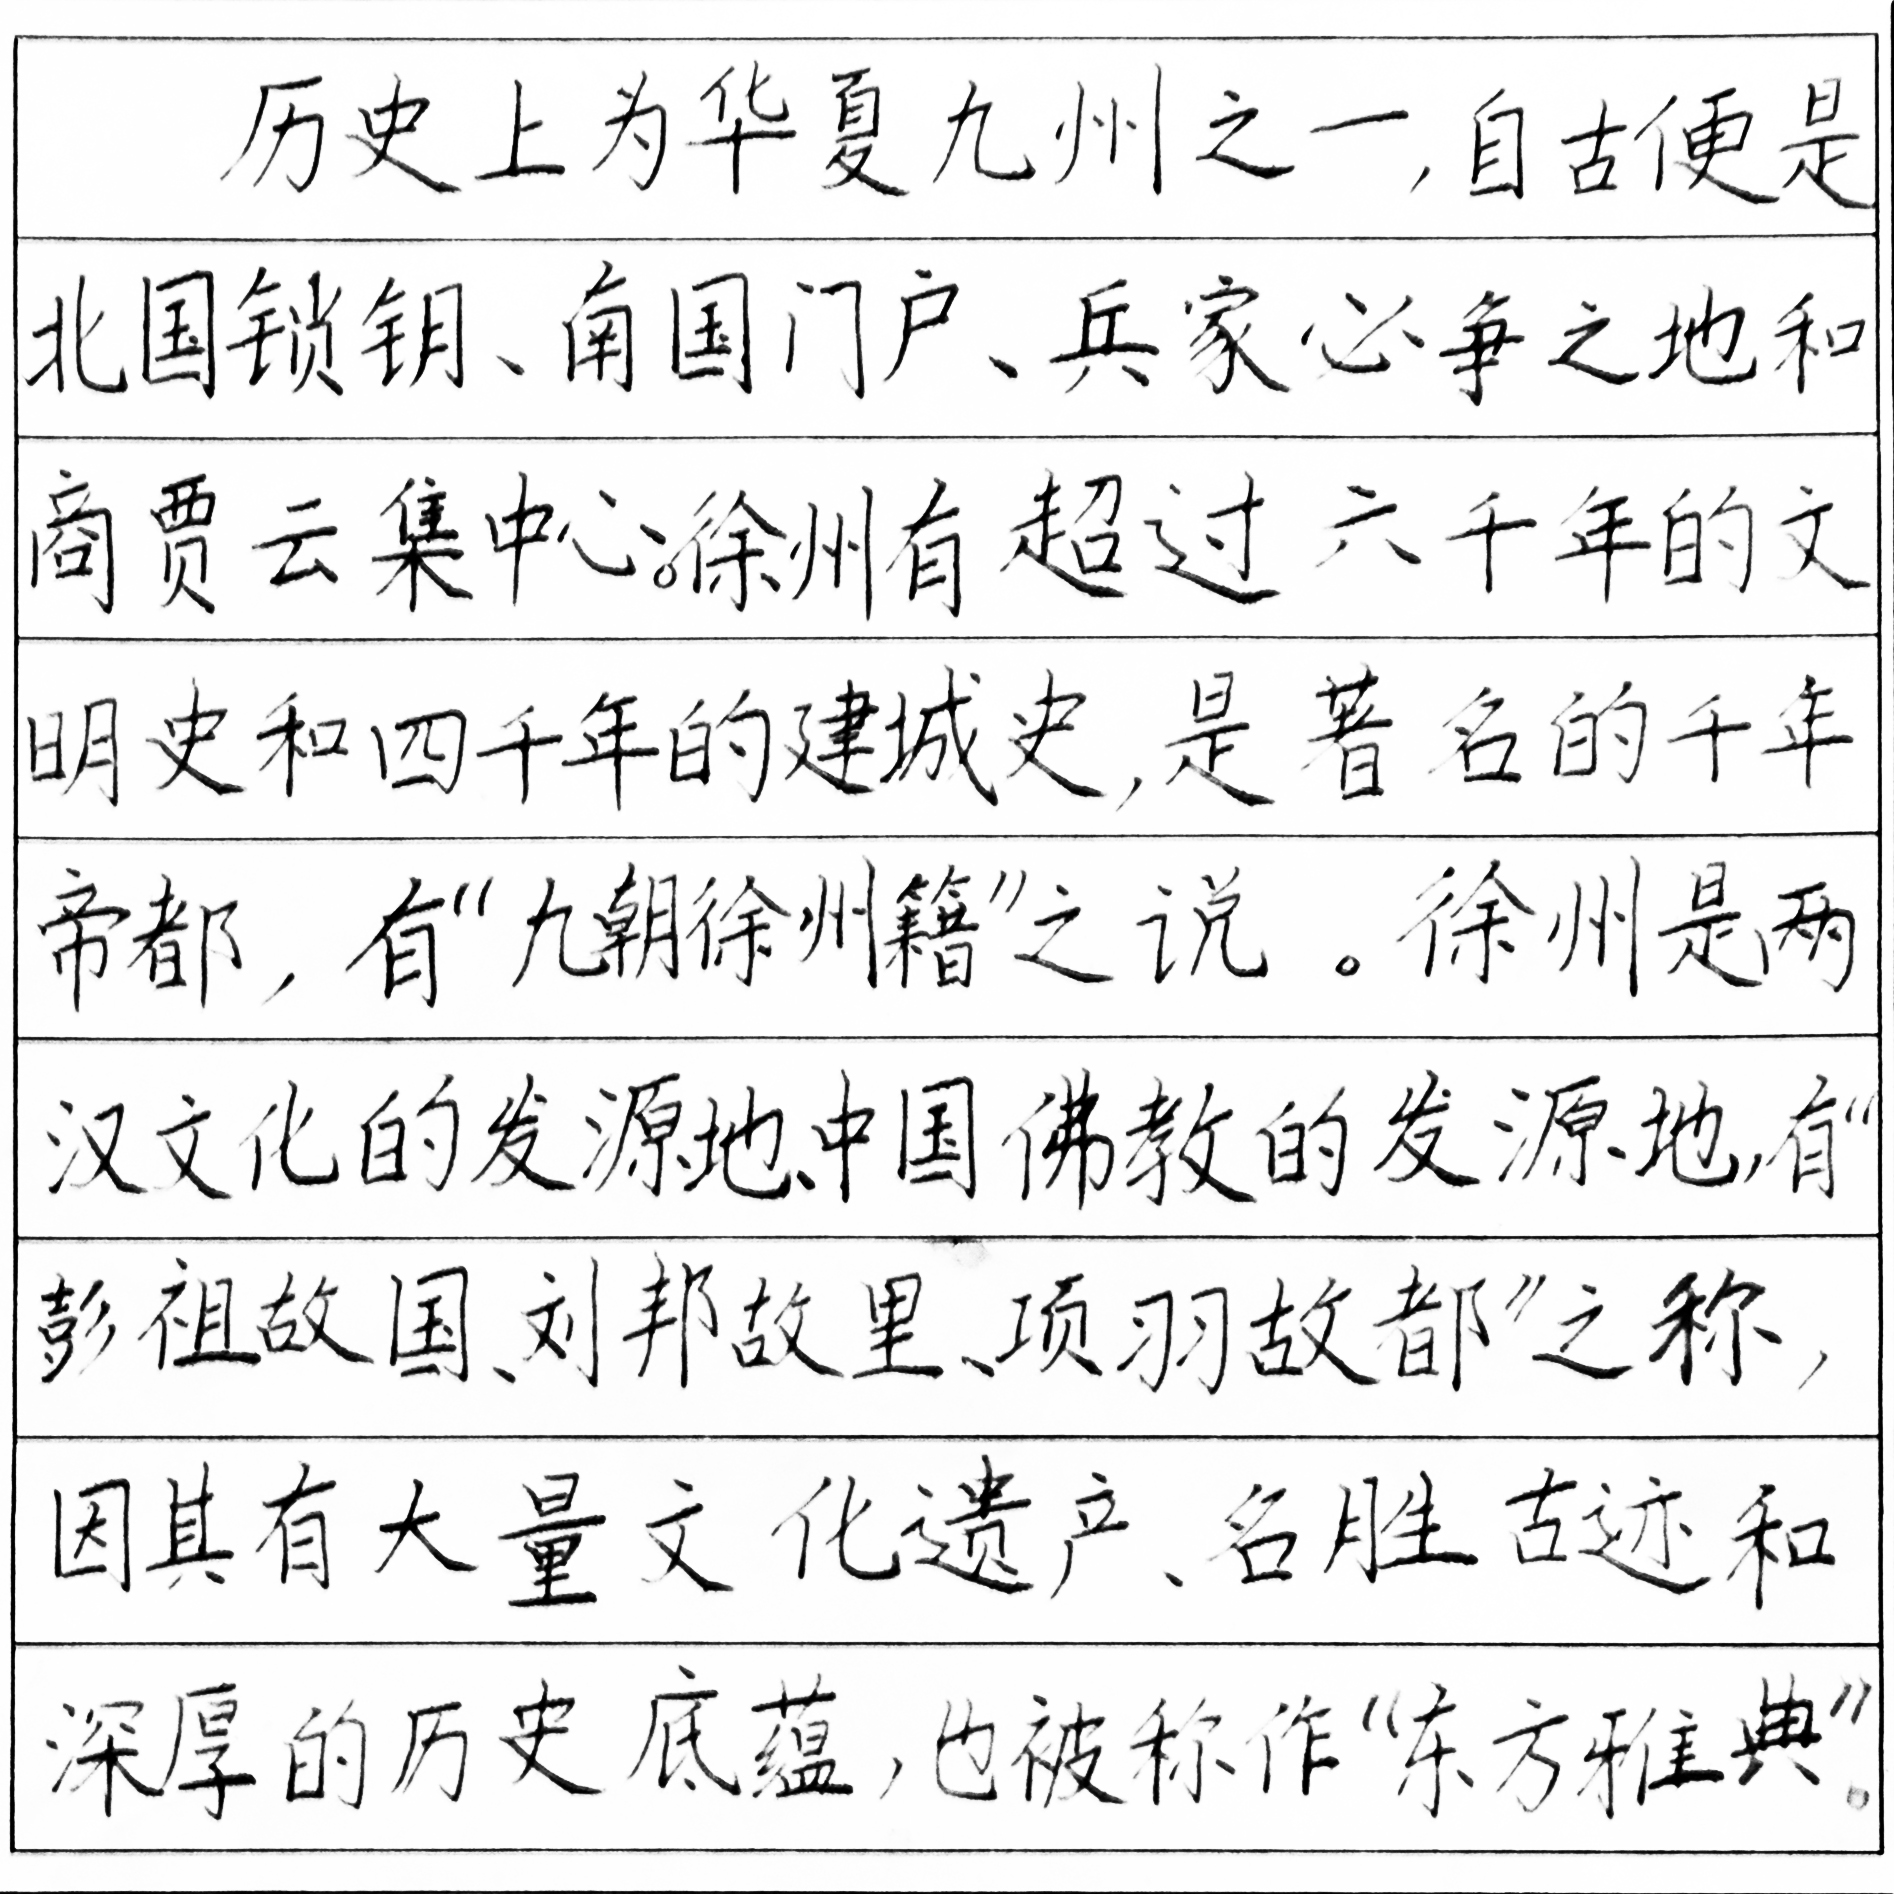 历史上为华夏九州之一,自古便是
北国锁钥、南国门户、兵家必争之地和
商贾云集中心。徐州有超过六千年的文
明史和四千年的建城史,是著名的千年
帝都,有“九朝徐州籍”之说。徐州是两
汉文化的发源地、中国佛教的发源地,有“
彭祖故国、刘邦故里、项羽故都”之称,
因其有大量文化遗产、名胜古迹和
深厚的历史底蕴,也被称作“东方雅典”。